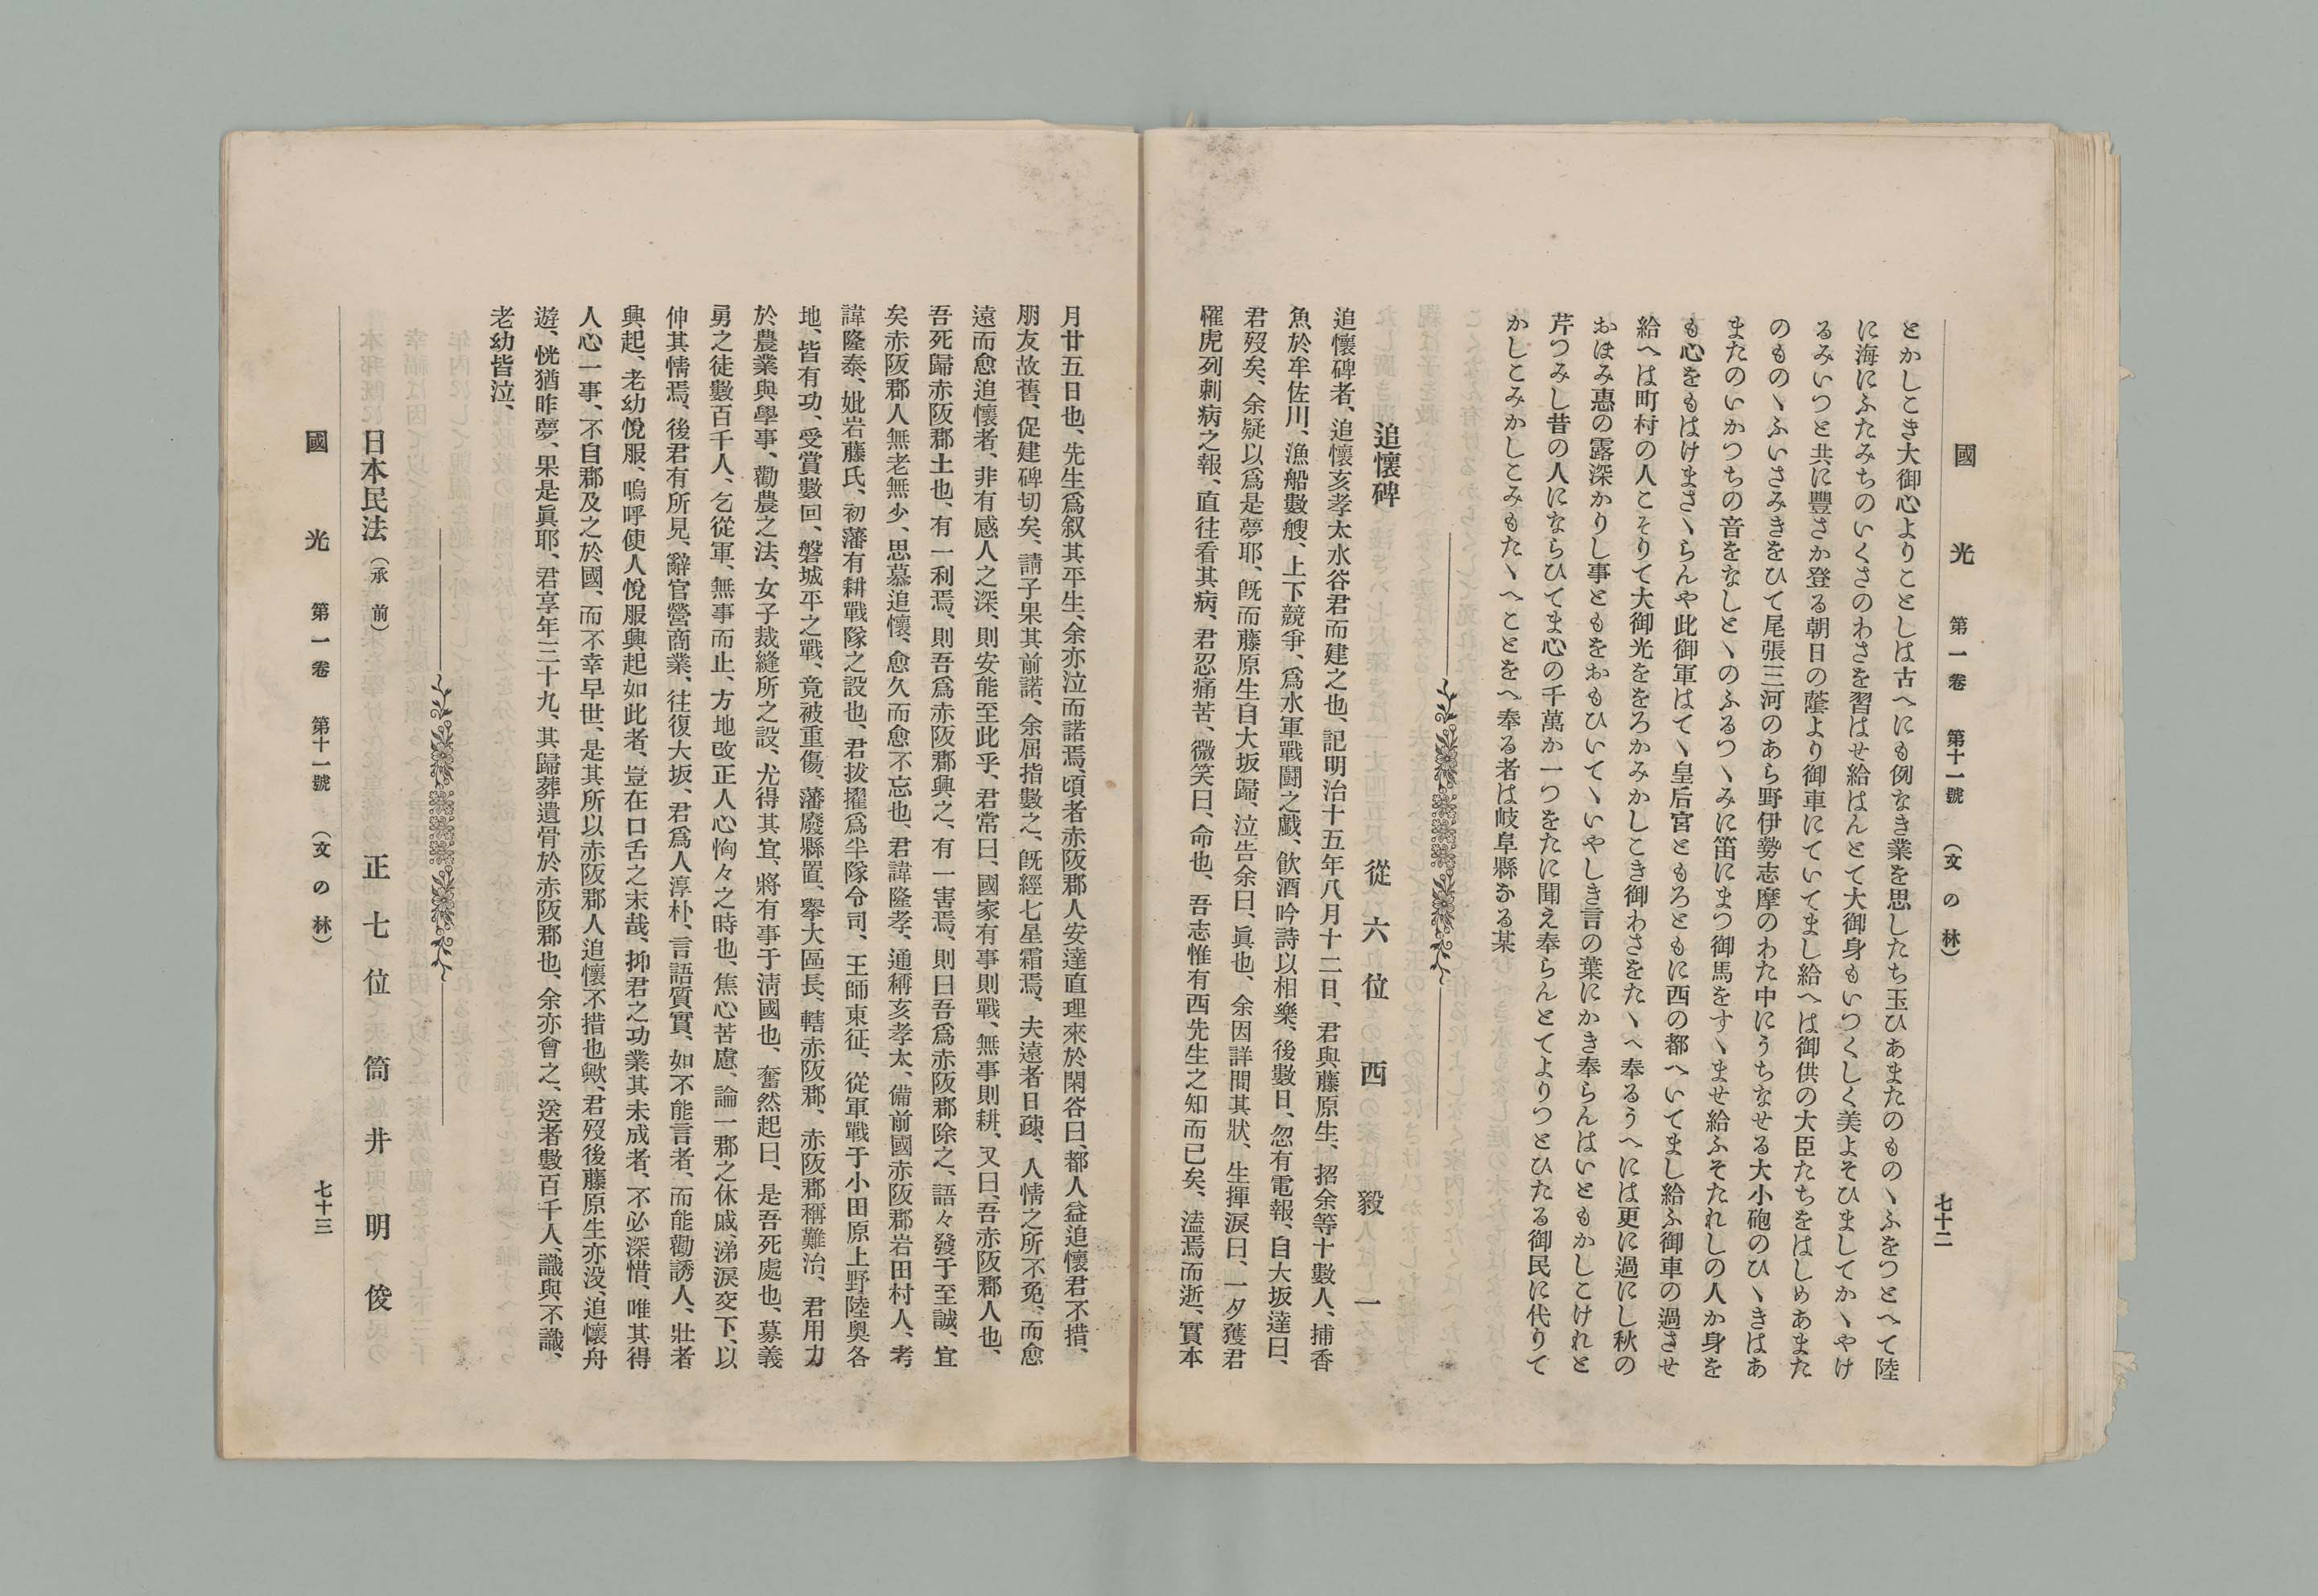 國光 第一卷 第十一號 (文の林) 七十二
とかしこき大御心よりことしは古へにも例なき業を思したち玉ひあまたのものゝふをつとへて陸
に海にふたみちのいくさのわさを習はせ給はんとて大御身もいつくしく美よそひましてかゝやけ
るみいつと共に豐さか登る朝日の蔭より御車にていてまし給へは御供の大臣たちをはしめあまた
のものゝふいさみきをひて尾張三河のあら野伊勢志摩のわた中にうちなせる大小砲のひゝきはあ
またのいかつちの音をなしとゝのふるつゝみに笛にまつ御馬をすゝませ給ふそたれしの人か身を
も心をもはけまさゝらんや此御軍はてゝ皇后宮ともろともに西の都へいてまし給ふ御車の過させ
給へは町村の人こそりて大御光ををろかみかしこき御わさをたゝへ奉るうへには更に過にし秋の
おほみ惠の露深かりし事ともをおもひいてゝいやしき言の葉にかき奉らんはいともかしこけれと
芹つみし昔の人にならひてま心の千萬か一つをたに聞え奉らんとてよりつとひたる御民に代りて
かしこみかしこみもたゝへことをへ奉る者は岐阜縣なる某
追懷碑
從六位 西毅一
追懷碑者、追懷亥孝太水谷君而建之也、記明治十五年八月十二日、君與藤原生、招余等十數人、捕香
魚於牟佐川、漁船數艘、上下競爭、爲水軍戰鬪之戲、飮酒吟詩以相樂、後數日、忽有電報、自大坂達曰、
君歿矣、余疑以爲是夢耶、旣而藤原生自大坂歸、泣告余曰、眞也、余因詳問其狀、生揮淚曰、一夕獲君
罹虎列剌病之報、直往看其病、君忍痛苦、微笑曰、命也、吾志惟有西先生之知而已矣、溘焉而逝、實本
月廿五日也、先生爲叙其平生、余亦泣而諾焉、頃者赤阪郡人安達直理來於閑谷曰、都人益追懷君不措、
朋友故舊、促建碑切矣、請子果其前諾、余屈指數之、旣經七星霜焉、夫遠者日疎、人情之所不免、而愈
遠而愈追懷者、非有感人之深、則安能至此乎、君常曰、國家有事則戰、無事則耕、又曰、吾赤阪郡人也、
吾死歸赤阪郡土也、有一利焉、則吾爲赤阪郡興之、有一害焉、則曰吾爲赤阪郡除之、語々發于至誠、宜
矣赤阪郡人無老無少、思慕追懷、愈久而愈不忘也、君諱隆孝、通稱亥孝太、備前國赤阪郡岩田村人、考
諱隆泰、妣岩藤氏、初藩有耕戰隊之設也、君拔擢爲半隊令司、王師東征、從軍戰于小田原上野陸奧各
地、皆有功、受賞數回、磐城平之戰、竟被重傷、藩廢縣置、擧大區長、轄赤阪郡、赤阪郡稱難治、君用力
於農業與學事、勸農之法、女子裁縫所之設、尤得其宜、將有事于淸國也、奮然起曰、是吾死處也、募義
勇之徒數百千人、乞從軍、無事而止、方地改正人心恟々之時也、焦心苦慮、論一郡之休戚、涕淚交下、以
伸其情焉、後君有所見、辭官營商業、往復大坂、君爲人淳朴、言語質實、如不能言者、而能勸誘人、壯者
興起、老幼悅服、嗚呼使人悅服興起如此者、豈在口舌之末哉、抑君之功業其未成者、不必深惜、唯其得
人心一事、不自郡及之於國、而不幸早世、是其所以赤阪郡人追懷不措也歟、君歿後藤原生亦沒、追懷舟
遊、恍猶昨夢、果是眞耶、君享年三十九、其歸葬遺骨於赤阪郡也、余亦會之、送者數百千人、識與不識、
老幼皆泣、
日本民法（承前） 正七位 筒井明俊
國光 第一卷 第十一號 (文の林) 七十三